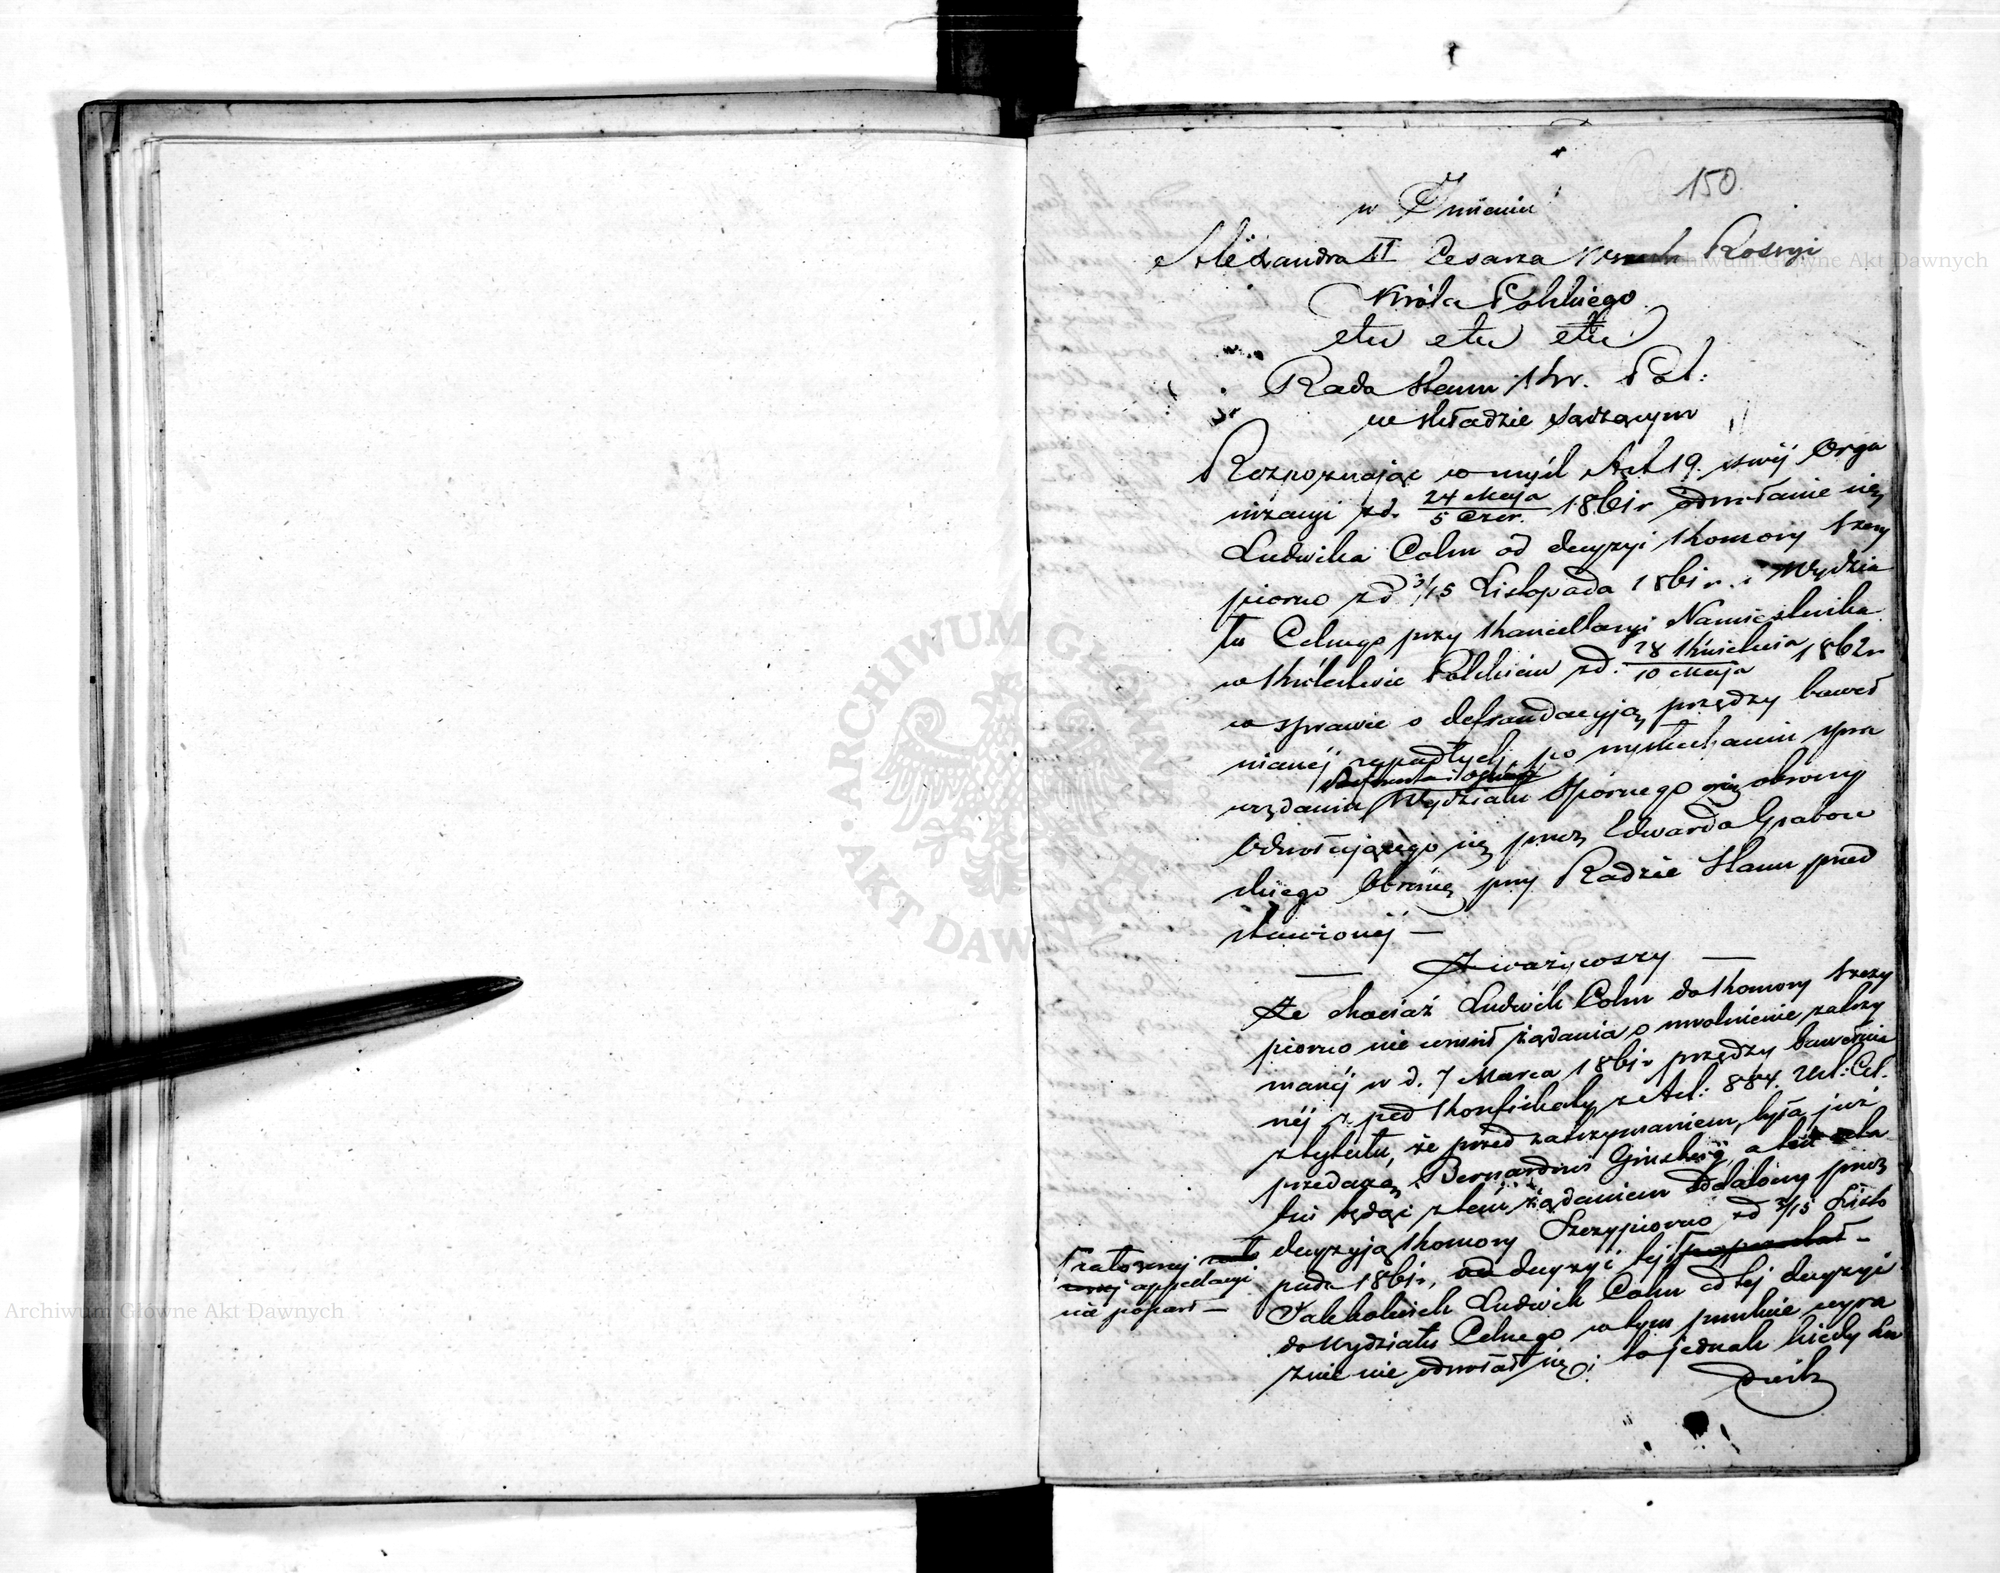 150.
w Imieniu
Alexandra II Cesarza Rossyi
Króla Polskiego
etu etu etu
Rada Stanu Kr. Pol:
w składzie sądzącym
Rozpoznając w myśl Art 19. swéj Orga
nizacyi z d. 24 Maja / 5 Czer. 1861 r odwołanie się
Ludwika Cohn od decyzyi Komory Szczy
piorno z d 3/15 Listopada 1861 r. i Wydzia
łu Celnego przy Kancellaryi Namiestnika
w Królestwie Polskiem z d. 28 Kwietnia / 10 Maja 1862 r
w sprawie o defraudacyją przędzy baweł
nianéj zapadłych, po wysłuchaniu spra
wozdania Wydziału Spornego obrony
Odwołującego się przez Edwarda Grabow
skiego Obrońcę przy Radzie Stanu przed
stawionéj —
— Zważywszy —
Że chociaż Ludwik Cohn do Komory Szczy
piorno nie wniósł żądania o uwolnienie zatrzy
manéj w d. 7 Marca 1861 r przędzy bawełnia
néj z pod Konfiskaty z Art: 884. Ust: Cel.
z tytułu, że przed zatrzymaniem, była już
przedaną Bernardowi Ginsberg, a
tni będąc z tem żądaniem oddalony przez
decyzyją Komory Szczypiorno z d 3/15 Listo
pada 1861 r, od decyzyi téj
założonéj
appellacyi
nie poparł —
Jakkolwiek Ludwik Cohn od téj decyzyi
do Wydziału Celnego w tym punkcie wyra
źnie nie odwołał się; to jednak kiedy Lu
dwik
ARCHIWUM GŁÓWNE AKT DAWNYCH
Archiwum Główne Akt Dawnych
Archiwum Główne Akt Dawnych